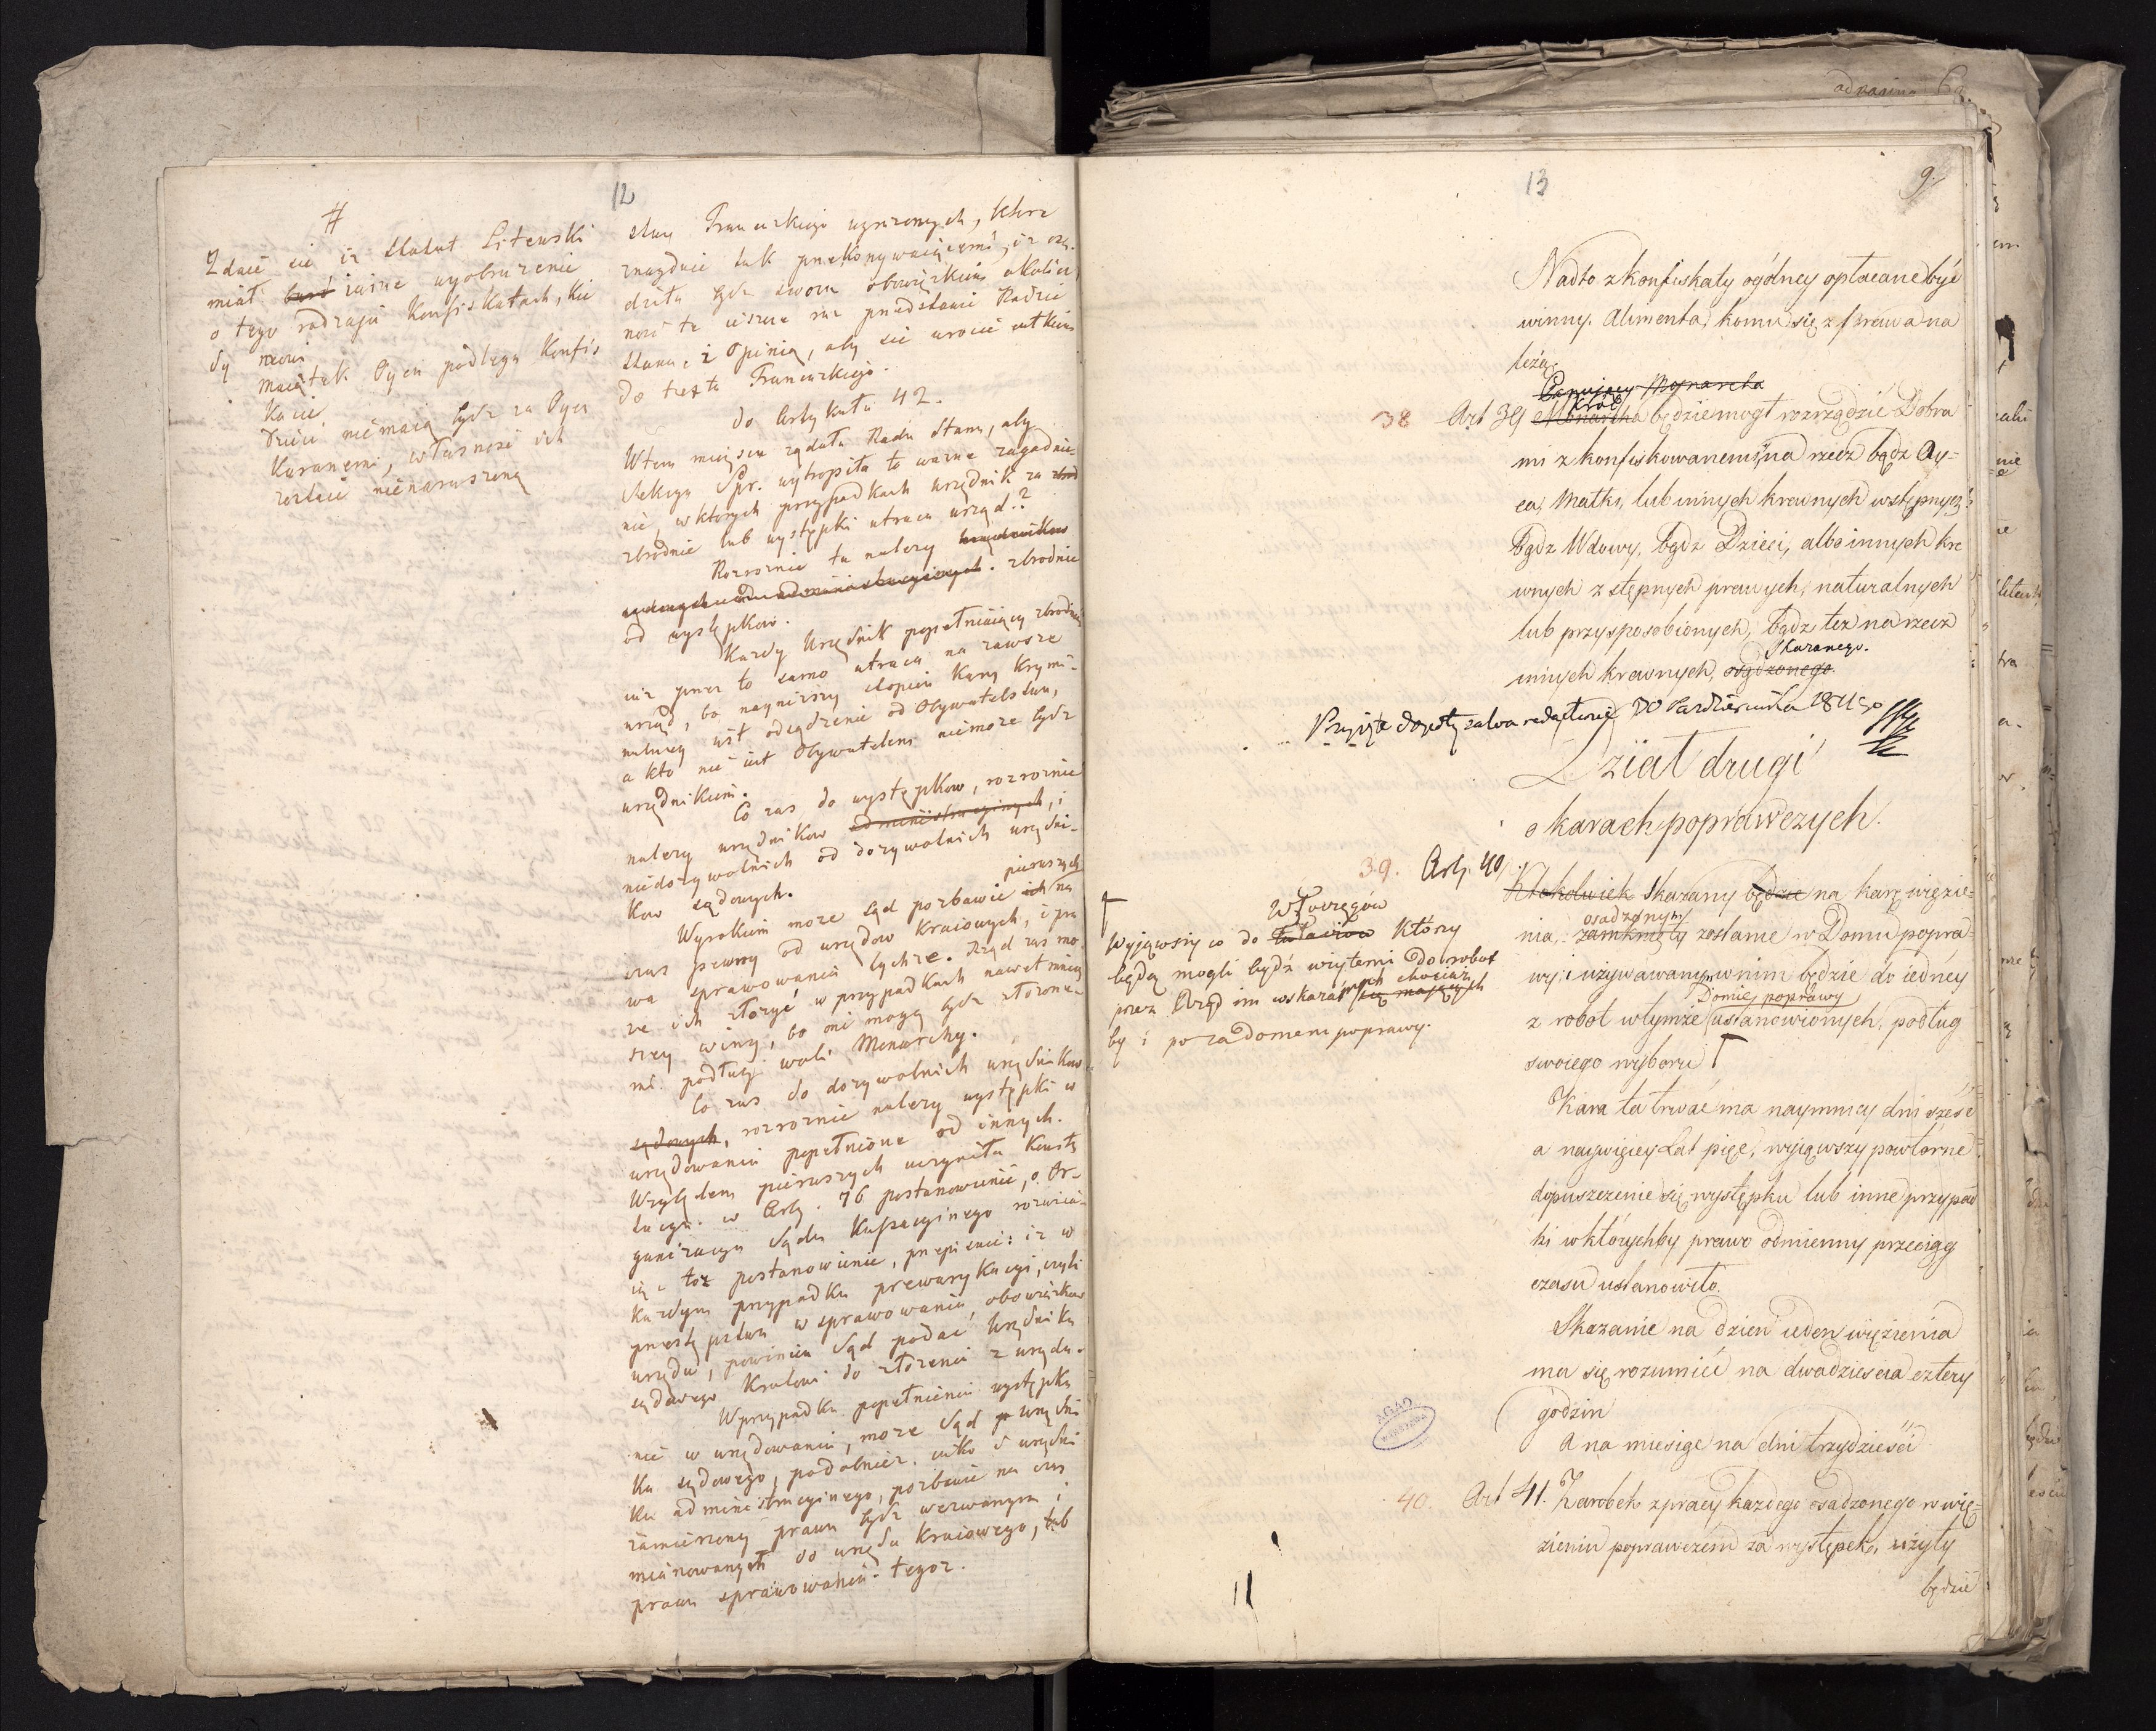 12
#
Zdaie się iż Statut Litewski
miał barć iasne wyobrażenie
o tego rodzaju Konfiskatach, kie
dy mowi
Maiątek Oyca podlega Konfis
kacie
Dzieci nie maią bydz za Oyca
Karanemi, własność ich
zostaie nienaruszoną
stwy Francuzkiego wyrzeczonych, które
znayduie tak przekonywaiącemi, iż osą-
dziła bydz swoim obowiązkiem okolicz
ność tę ieszcze raz przedstawić Radzie
Stanu, z Opinią, aby się wrócić całkiem
do textu Francuzkiego.
do Artykułu 42.
W tem mieyscu żądała Rada Stanu, aby
Sekcya Spr. wytropiła to ważne zagadnie-
nie, w ktorych przypadkach urzędnik za zbrod
zbrodnie lub występki utraca urząd.?
Rozroznić tu należy urzędnikow
sądowych od administracyinych. zbrodnie
od występkow.
Każdy Urzędnik popełniaiący zbrodnię
iuż przez to samo utraca na zawsze
urząd, bo nayniższy stopień Kary Krymi-
nalney iest odsądzenie od Obywatelstwa,
a kto nie iest Obywatelem nie może bydz
urzędnikiem.
Co zaś do występkow, rozroznić
należy urzędnikow administracyinych, i
niedożywotnich od dożywotnich urzędni-
kow sądowych.
pierwszych
Wyrokiem może sąd pozbawić ich na
czas pewny od urzędow Kraiowych, i pra
wa sprawowania tychże. Rząd zaś mo
że ich złożyć w przypadkach nawet mniey
szey winy, bo oni mogą bydz złożone-
mi podług woli Monarchy.
Co zaś do dożywotnich urzędnikow
sądowych, rozroznić należy występki w
urzędowaniu popełnione od innych.
Względem pierwszych uczyniła Konsty
tucya w Arty. 76 postanowienie, o. Or-
ganizacyi Sądu Kassacyinego rozwiia-
iąc toż postanowienie, przepisuie: iż w
Każdym przypadku prewarykacyi, czyli
przestępstwa w sprawowaniu, obowiązkow
urzędu, powinien Sąd podać Urzędnika
sądowego Krolowi do złożenia z urzędu.
W przypadku popełnienia występku
nie w urzędowaniu, może Sąd po urzędni
ka sądowego, podobnież iako i urzędni
ka administracyinego, pozbawić na czas
zamierzony prawa bydz wezwanym i
mianowanym do urzędu Kraiowego, lub
prawa sprawowania tegoz.
13
9.
Nadto z konfiskaty ogólney opłacane być
winny. Alimenta, komu się z prawa na
leżą.
Panujący Monarcha
Król
38 Art 39 Monarcha będzie mogł rozrządzić Dobra
mi z konfiskowanemi, na rzecz bądz Oy=
ca, Matki, lub innych krewnych wstępnych
bądz Wdowy, bądz Dzieci, albo innych kre
wnych zstępnych prawych, naturalnych
lub przysposobionych, bądz też na rzecz
Skazanego.
innych krewnych, osądzonego.
Przyięte dopoty salva redactione DO Października 1814 go
Dział drugi
o karach poprawczych.
39. Arty. 40 Ktokolwiek Skazany będzie na karę więzie=
osadzonym
nia, zamknięty zostanie w Domu popra=
wy, i używanym w nim będzie do iedney
Domie poprawy
z robot w tymże ustanowionych, podług
swoiego wyboru ┌
┌
Włóczęgów
Wyjąwszy co do tułaczow którzy
będą mogli bydź wziętemi do robot
przez Rząd im wskazanych chociaż
się mających
by i po za domem poprawy.
Kara ta trwać ma naymniey dni sześć
a naywięcey Lat pięć, wyjąwszy powtórne
dopuszczenie się występku lub inne przypad
ki w którychby prawo odmienny przeciąg
czasu ustanowiło.
Skazanie na dzień ieden więzienia
ma się rozumieć na dwadzieścia cztery
godzin
a na miesiąc na dni trzydzieści
AGAD
WARSZAWA
40. Art 41. Zarobek z pracy każdego osadzonego w wię=
zieniu poprawczem za występek, użyty
będzie